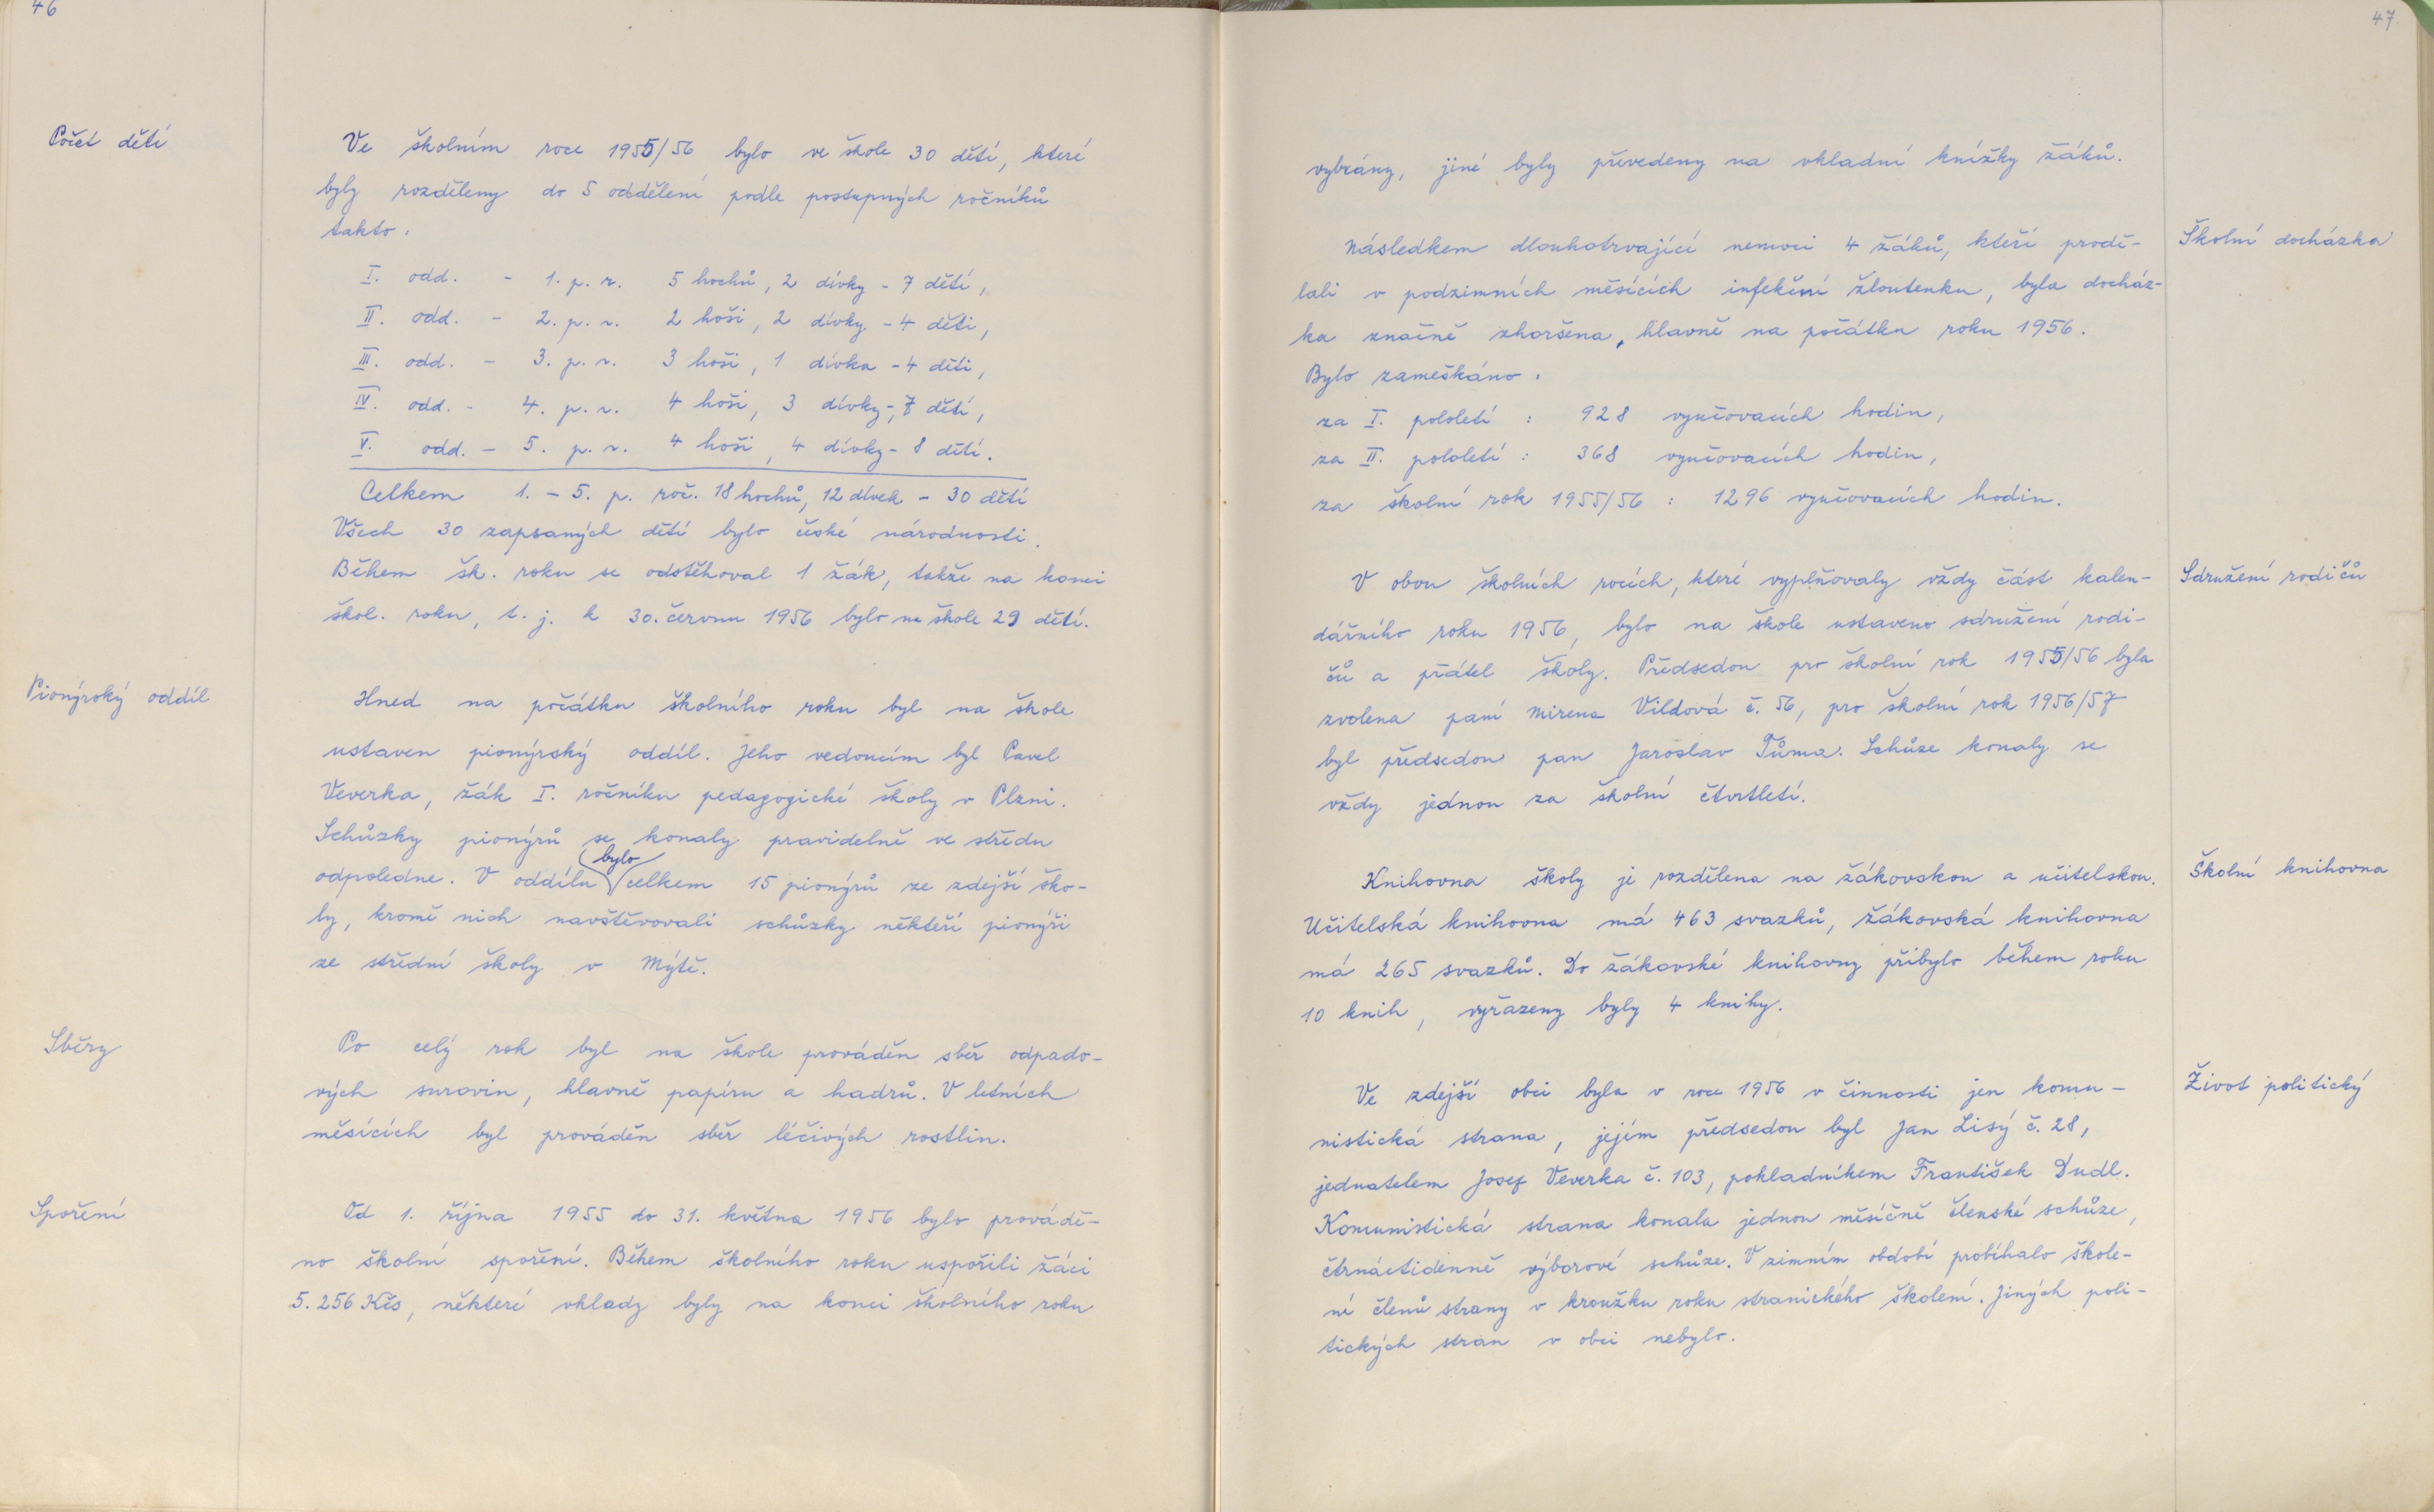 46
Počet dětí
Ve školním roce 1955/56 bylo ve škole 30 dětí, které
byly rozděleny do 5 oddělení podle postupných ročníků
takto:
I. odd. - 1. p. r. 5 hochů, 2 dívky - 7 dětí,
II. odd. - 2. p. r. 2 hoši, 2 dívky - 4 děti,
III. odd. - 3. p. r. 3 hoši, 1 dívka - 4 děti,
IV. odd. - 4. p. r. 4 hoši, 3 dívky -, 7 dětí,
V. odd. - 5. p. r. 4 hoši, 4 dívky - 8 dětí.
Celkem 1. - 5. p. roč. 18 hochů, 12 dívek - 30 dětí
Všech 30 zapsaných dětí bylo české národnosti.
Během šk. roku se odstěhoval 1 žák, takže na konci
škol. roku, t. j. k 30. červnu 1956 bylo na škole 29 dětí.
Pionýrský oddíl
Hned na počátku školního roku byl na škole
ustaven pionýrský oddíl. Jeho vedoucím byl Pavel
Veverka, žák I. ročníku pedagogické školy v Plzni.
Schůzky pionýrů se konaly pravidelně ve středu
odpoledne. V oddílu bylo celkem 15 pionýrů ze zdejší ško-
ly, kromě nich navštěvovali schůzky někteří pionýři
ze střední školy v Mýtě.
Sběry
Po celý rok byl na škole prováděn sběr odpado-
vých surovin, hlavně papíru a hadrů. V letních
měsících byl prováděn sběr léčivých rostlin.
Spoření
Od 1. října 1955 do 31. května 1956 bylo provádě-
no školní spoření. Během školního roku uspořili žáci
5.256 Kčs, některé vklady byly na konci školního roku
47.
vybrány, jiné byly převedeny na vkladní knížky žáků.
Školní docházka
Následkem dlouhotrvající nemoci 4 žáků, kteří prodě-
lali v podzimních měsících infekční žloutenku, byla docház-
ka značně zhoršena, hlavně na počátku roku 1956.
Bylo zameškáno:
za I. pololetí: 928 vyučovacích hodin,
za II. pololetí: 368 vyučovacích hodin,
za školní rok 1955/56: 1296 vyučovacích hodin.
Sdružení rodičů
V obou školních rocích, které vyplňovaly vždy část kalen-
dářního roku 1956, bylo na škole ustaveno sdružení rodi-
čů a přátel školy. Předsedou pro školní rok 1955/56 byla
zvolena paní Mirena Vildová č. 56, pro školní rok 1956/57
byl předsedou pan Jaroslav Tůma. Schůze konaly se
vždy jednou za školní čtvrtletí.
Školní knihovna
Knihovna školy je rozdělena na žákovskou a učitelskou.
Učitelská knihovna má 463 svazků, žákovská knihovna
má 265 svazků. Do žákovské knihovny přibylo během roku
10 knih, vyřazeny byly 4 knihy.
Život politický
Ve zdejší obci byla v roce 1956 v činnosti jen komu-
nistická strana, jejím předsedou byl Jan Lisý č. 28,
jednatelem Josef Veverka č. 103, pokladníkem František Dudl.
Komunistická strana konala jednou měsíčně členské schůze,
čtrnáctidenně výborové schůze. V zimním období probíhalo škole-
ní členů strany v kroužku roku stranického školení. Jiných poli-
tických stran v obci nebylo.